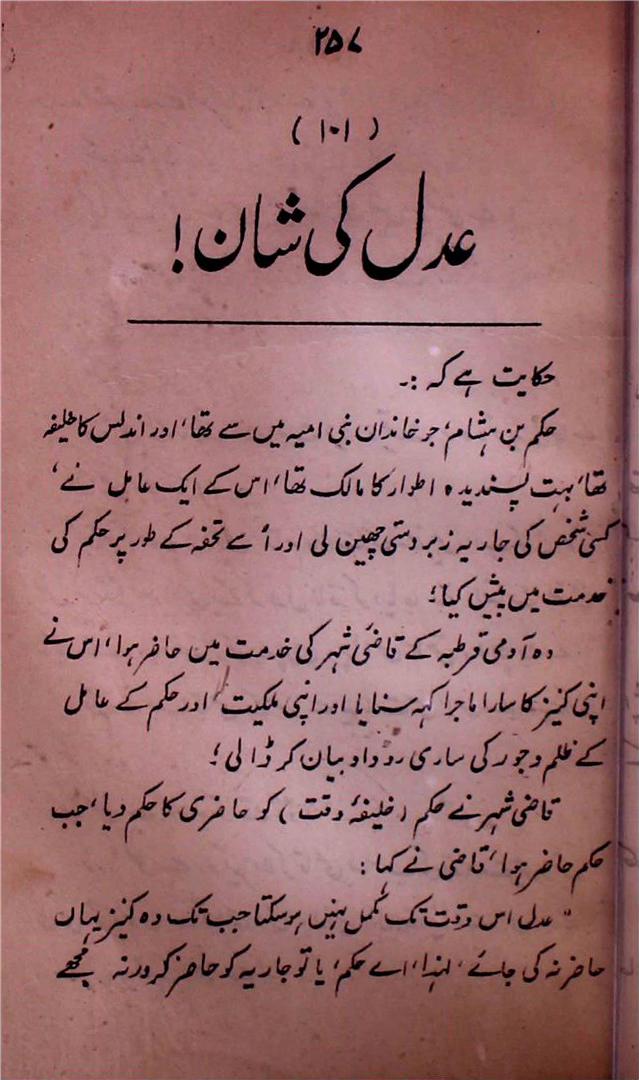 ۲۵۷
(۱۰۱)
عدل کی شان!
حکایت ہے کہ :۔
حکم بن ہشام، جو خاندان بنی امیہ میں سے تھا، اور اندلس کا خلیفہ
تھا، بہت پسندیدہ اطوار کا مالک تھا، اس کے ایک عامل نے،
کسی شخص کی جاریہ زبردستی چھین لی اور اُسے تحفہ کے طور پر حکم کی
خدمت میں پیش کیا؛
وہ آدمی قرطبہ کے قاضی شہر کی خدمت میں حاضر ہوا، اس نے
اپنی کنیز کا سارا ماجرا کہہ سنایا اور اپنی ملکیت اور حکم کے عامل
کے ظلم و جور کی ساری روداد بیان کر ڈالی؛
قاضی شہر نے حکم (خلیفۂ وقت) کو حاضری کا حکم دیا، جب
حکم حاضر ہوا، قاضی نے کہا:
"عدل اس وقت تک مکمل نہیں ہو سکتا جب تک وہ کنیز یہاں
حاضر نہ کی جائے، لہٰذا، اے حکم، یا تو جاریہ کو حاضر کرو ورنہ مجھے